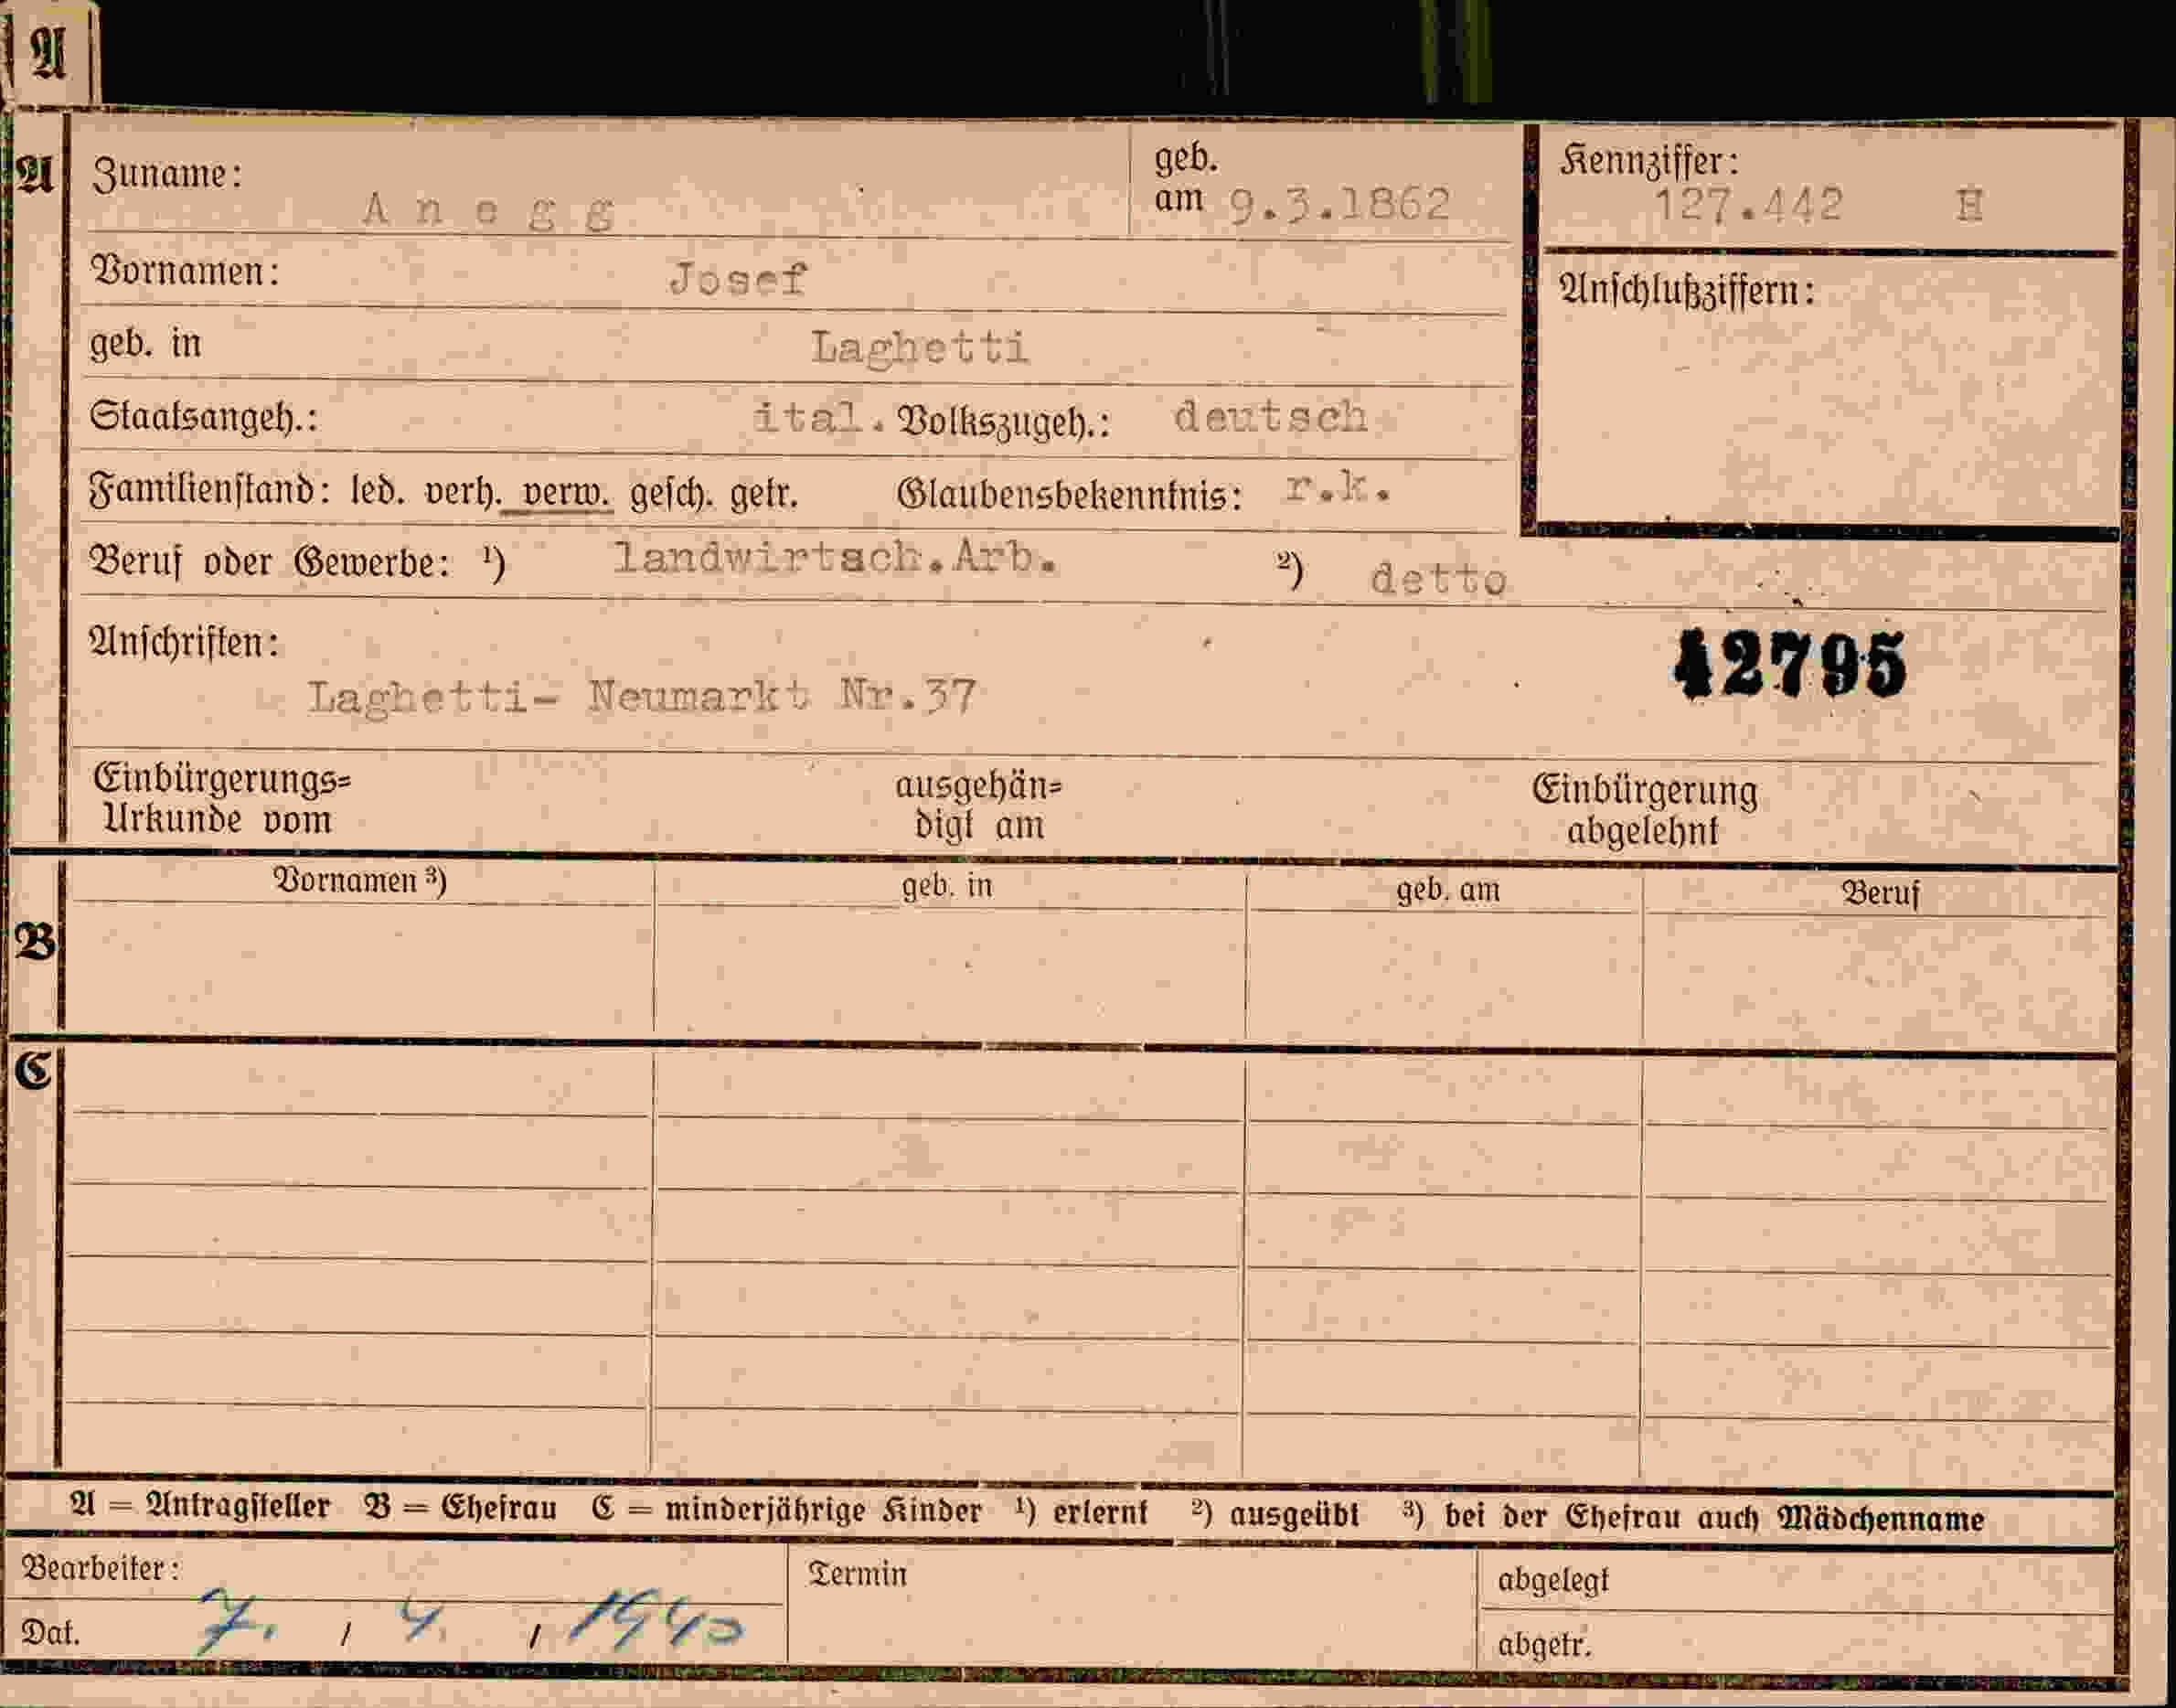 A
A
Zuname: A n e g g geb. am 9.3.1862
Kennziffer: 127.442 H
Vornamen: Josef
Anschlußziffern:
geb. in Laghetti
Staatsangeh.: ital. Volkszugeh.: deutsch
Familienstand: led. verh. verw. gesch. getr. Glaubensbekenntnis: r.k.
Beruf oder Gewerbe: ¹) landwirtsch.Arb. ²) detto
Anschriften:
42795
Laghetti- Neumarkt Nr.37
Einbürgerungs= ausgehän= Einbürgerung
Urkunde vom digt am abgelehnt
B
Vornamen ³) geb. in geb. am Beruf
C
A = Antragsteller B = Ehefrau C = minderjährige Kinder ¹) erlernt ²) ausgeübt ³) bei der Ehefrau auch Mädchenname
Bearbeiter: Termin abgelegt
Dat. 7. / 4. / 1940 abgetr.